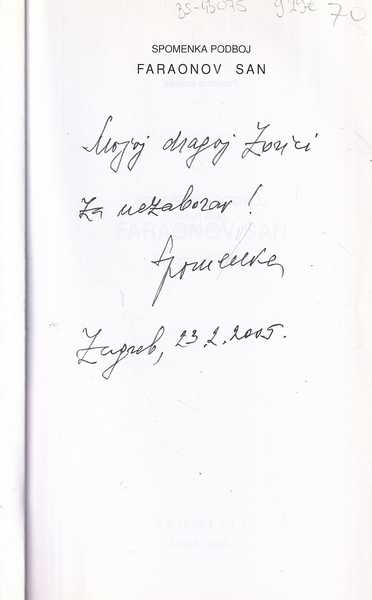 70
SPOMENKA PODBOJ
FARAONOV SAN
Mojoj dragoj Zorici
za nezaborav!
Spomenka
Zagreb, 23.2.2005.